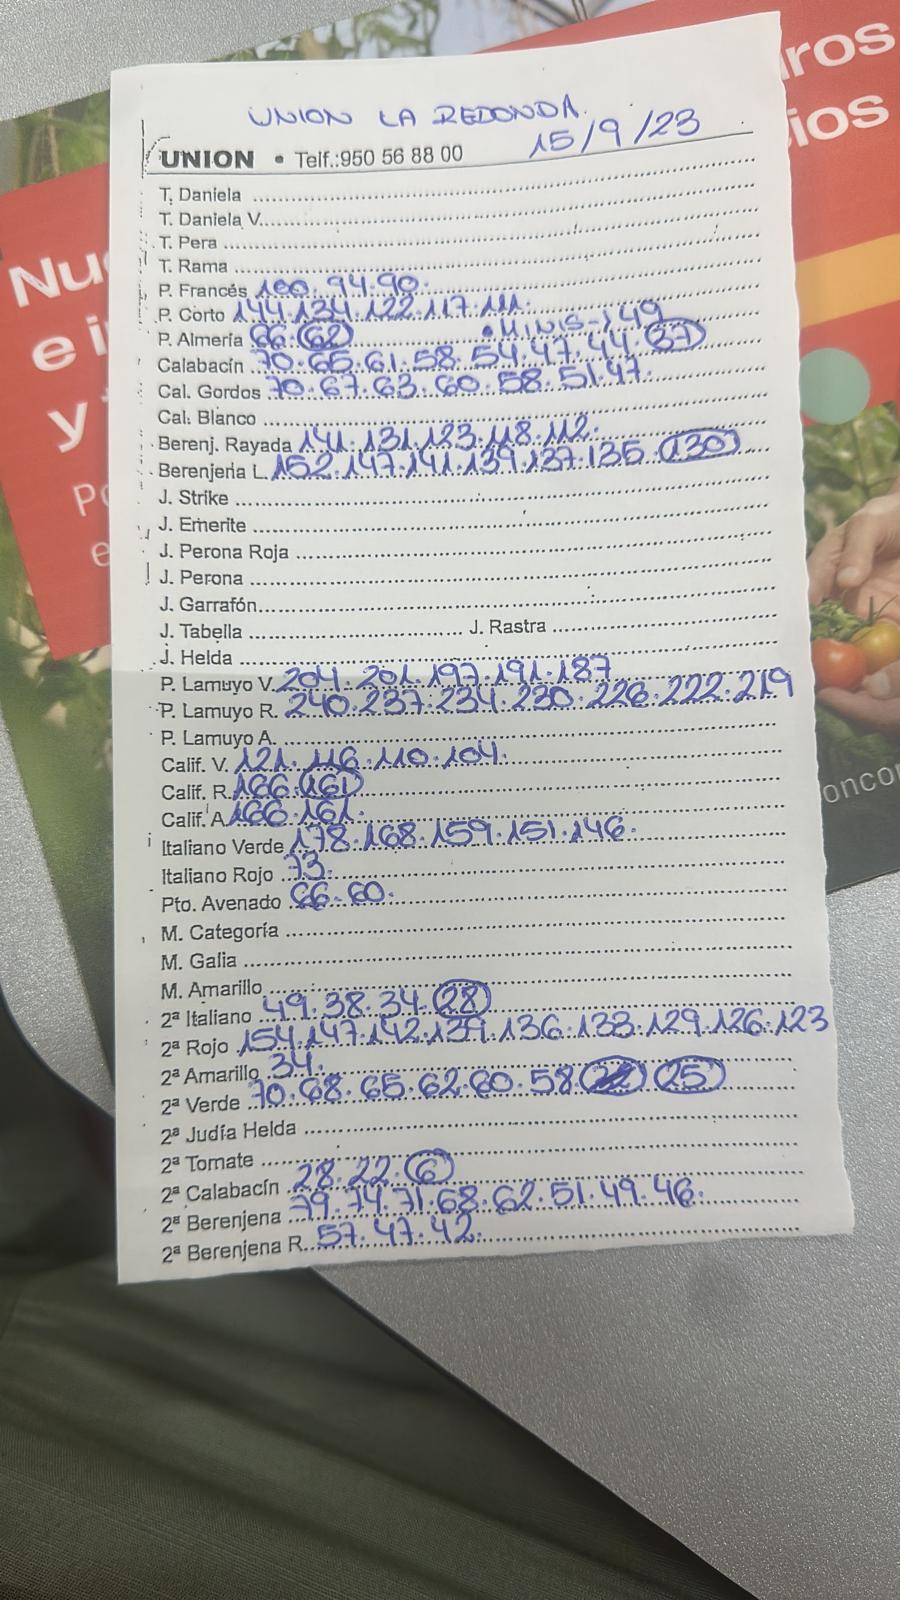 UNION LA REDONDA
15/9/23
UNION • Telf.:950 56 88 00
T. Daniela
T. Daniela V.
T. Pera
T. Rama
P. Francés 100. 94. 90.
P. Corto 144. 134. 122. 117. 111.
P. Almería 66. 62 • MINIS-149
Calabacín 70. 65. 61. 58. 54. 47. 44. 37
Cal. Gordos 70. 67. 63. 60. 58. 51. 47.
Cal. Blanco
Berenj. Rayada 141. 131. 123. 118. 112.
Berenjena L. 152. 147. 141. 139. 137. 135. 130
J. Strike
J. Emerite
J. Perona Roja
J. Perona
J. Garrafón
J. Tabella J. Rastra
J. Helda
P. Lamuyo V. 204. 201. 197. 191. 187
P. Lamuyo R. 240. 237. 234. 230. 226. 222. 219
P. Lamuyo A.
Calif. V. 121. 116. 110. 104.
Calif. R. 166. 161
Calif. A. 166. 161.
Italiano Verde 178. 168. 159. 151. 146.
Italiano Rojo 73.
Pto. Avenado 66. 60.
M. Categoría
M. Galia
M. Amarillo
2ª Italiano 49. 38. 34. 28
2ª Rojo 154. 147. 142. 139. 136. 133. 129. 126. 123
2ª Amarillo 34.
2ª Verde 70. 68. 65. 62. 60. 58 25
2ª Judía Helda
2ª Tomate
2ª Calabacín 28. 22. 6
2ª Berenjena 79. 74. 71. 68. 62. 51. 49. 46.
2ª Berenjena R. 57. 47. 42.